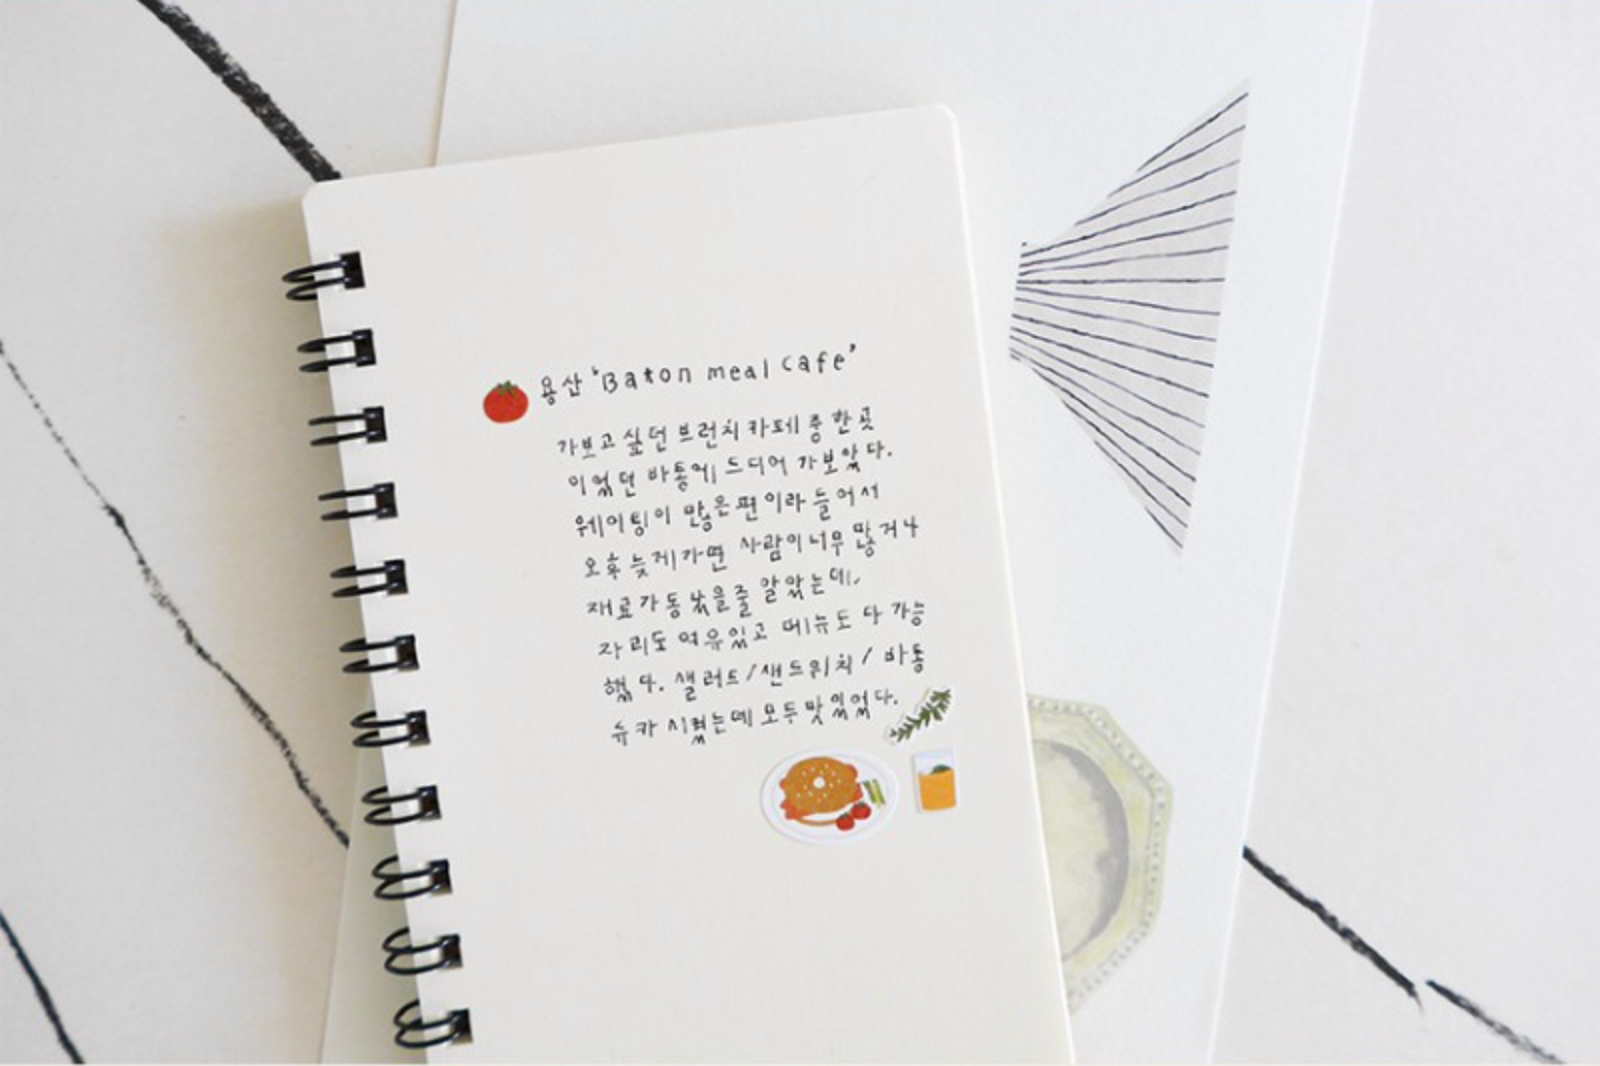 용산 'Baton meal cafe'
가보고 싶던 브런치 카페 중 한 곳
이었던 바통에 드디어 가보았다.
웨이팅이 많은편이라 들어서
오후 늦게가면 사람이 너무 많거나
재료가 동났을줄 알았는데,
자리도 여유있고 메뉴도 다 가능
했다. 샐러드/샌드위치/ 바통
슈카 시켰는데 모두 맛있었다.